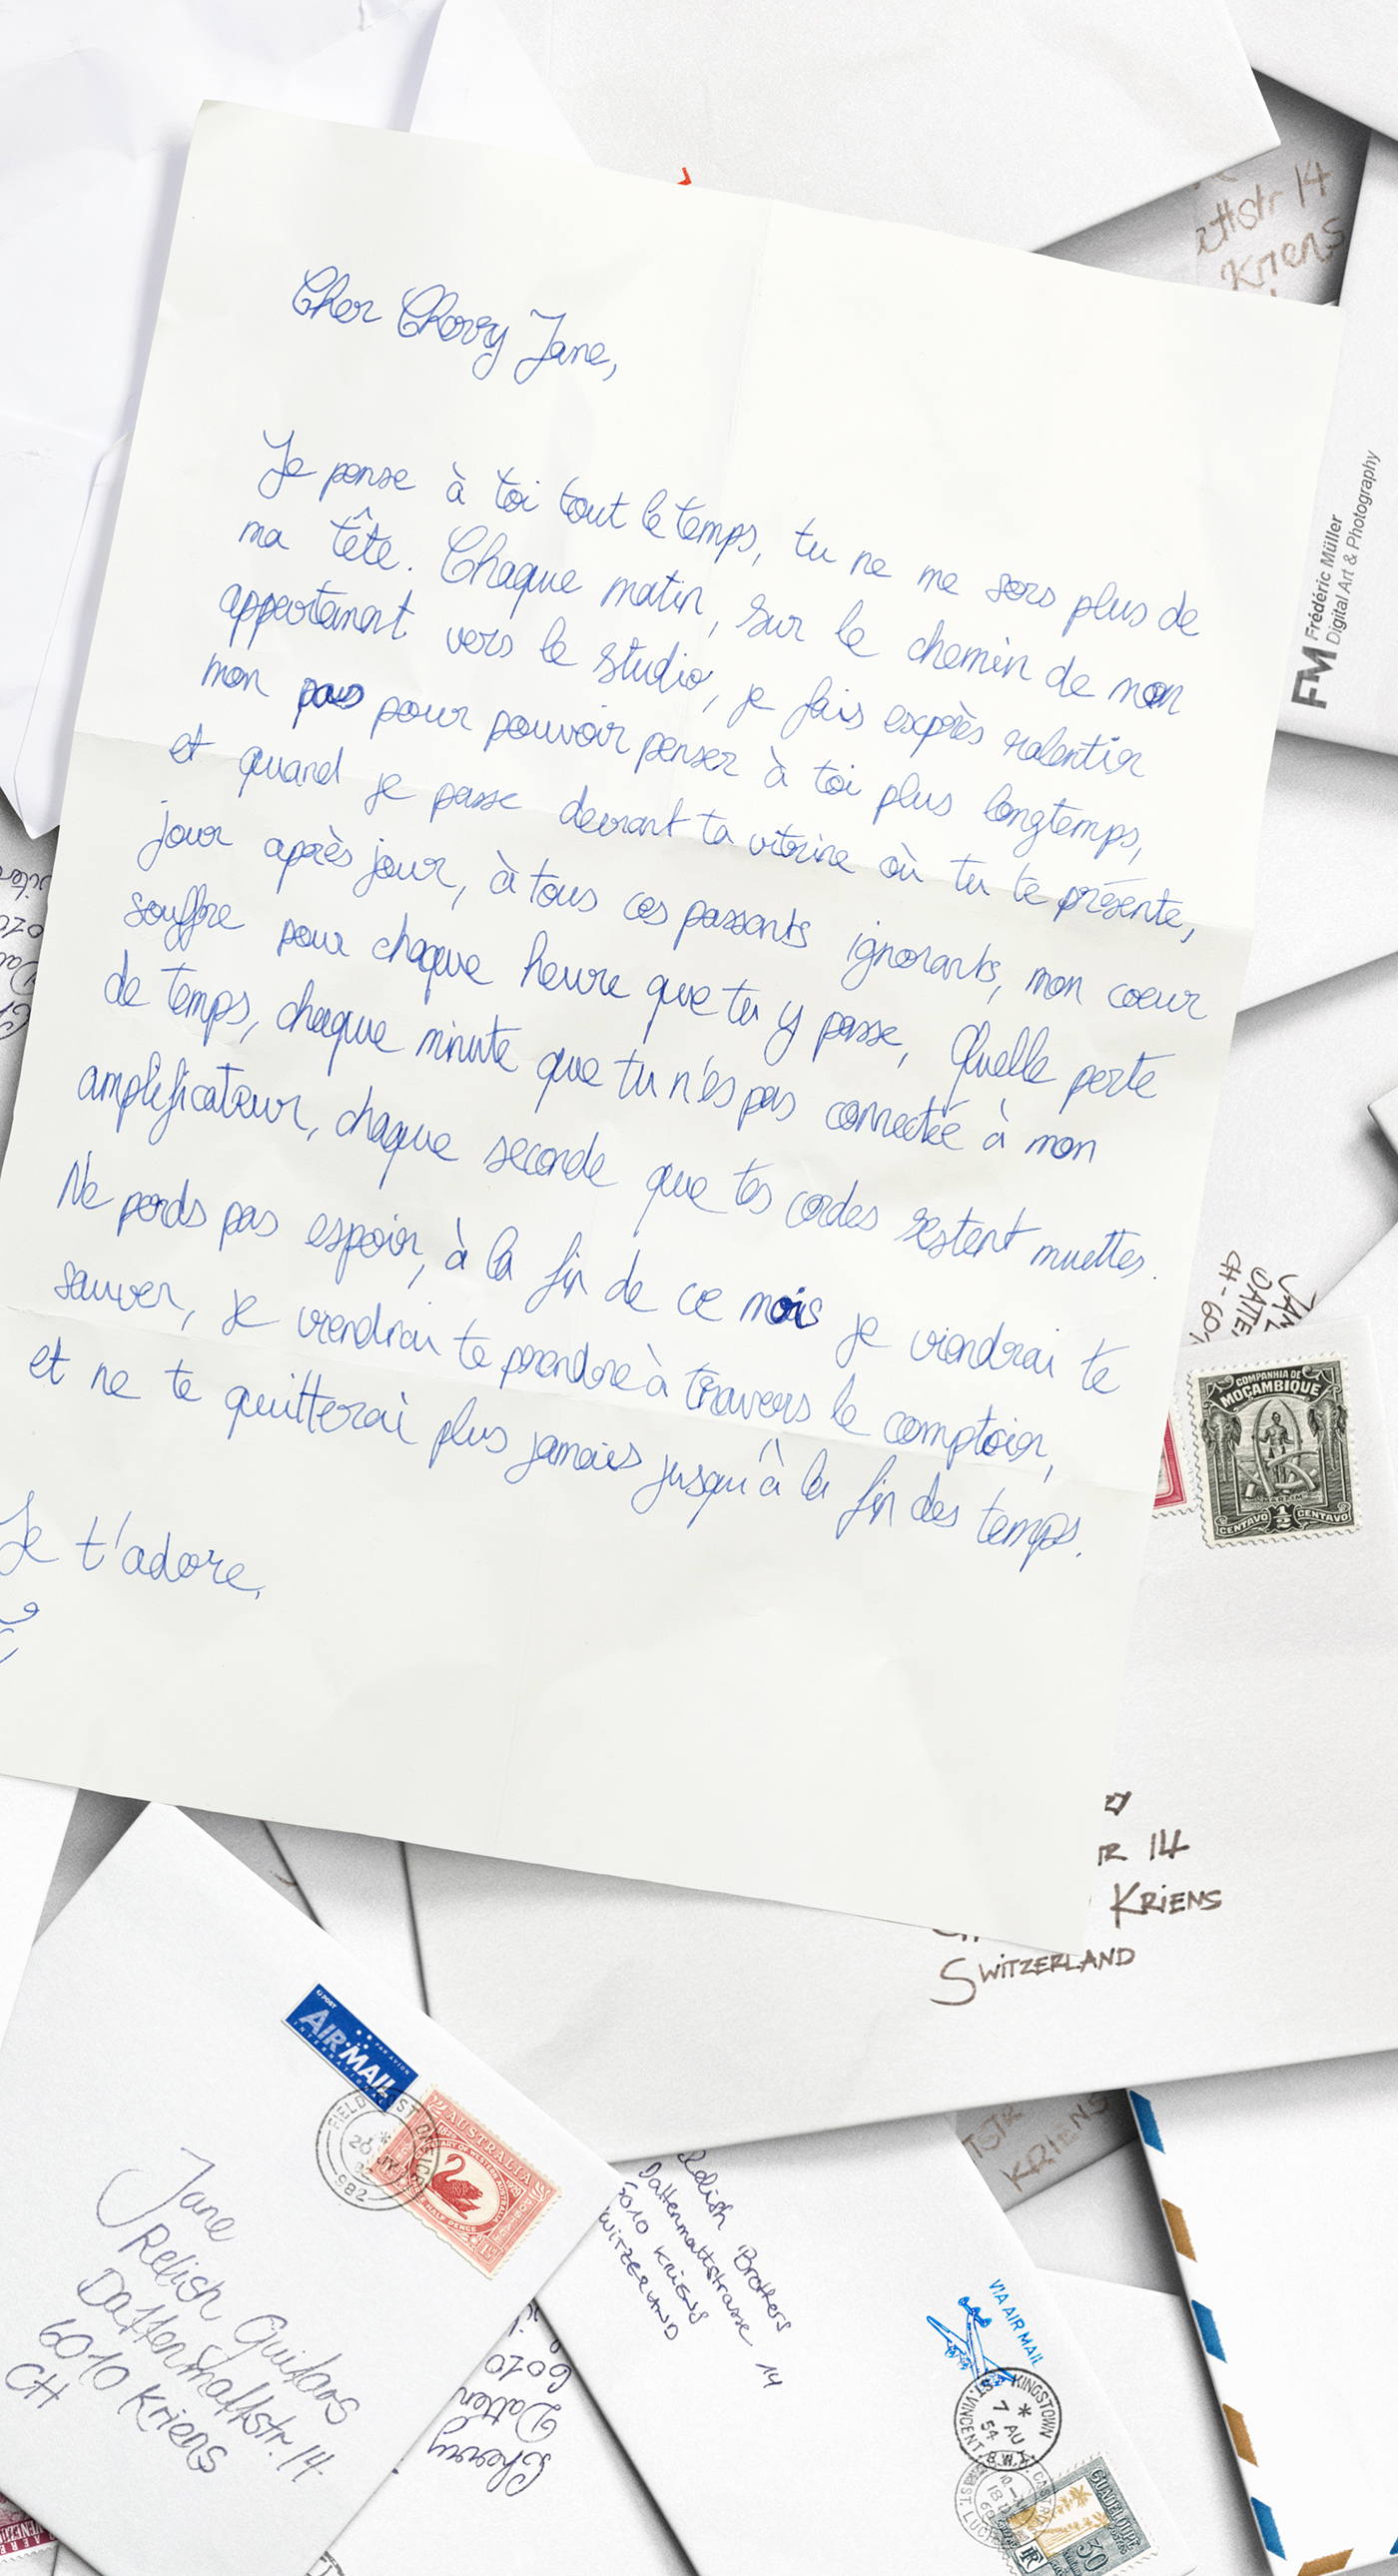 ttstr 14
Kriens
FM Frédéric Müller
Digital Art & Photography
Cher Cherry Jane,
Je pense à toi tout le temps, tu ne me sors plus de
ma tête. Chaque matin, sur le chemin de mon
appartement vers le studio, je fais exprès ralentir
mon pas pour pouvoir penser à toi plus longtemps,
et quand je passe devant ta vitrine où tu te présente,
jour après jour, à tous ces passants ignorants, mon coeur
souffre pour chaque heure que tu y passe, Quelle perte
de temps, chaque minute que tu n'és pas connectée à mon
amplificateur, chaque seconde que tes cordes restent muettes.
Ne perds pas espoir, à la fin de ce mois je viendrai te
sauver, je viendrai te prendre à travers le comptoir,
et ne te quitterai plus jamais jusqu'à la fin des temps.
Je t'adore,
JAN
DATTE
CH-601
COMPANHIA DE
MOÇAMBIQUE
MARFIM
CENTAVO 1/2 CENTAVO
R 14
KRIENS
SWITZERLAND
POST
AIR MAIL
PAR AVION
INTERNATIONAL
FIELD POST OFFICE
20 JY
982
AUSTRALIA
1829 CENTENARY OF WESTERN AUSTRALIA 1929
THREE HALF PENCE
Jane
Relish Guitars
Dattenmattstr. 14
6010 Kriens
CH
TSTR
KRIENS
Relish Brothers
Dattenmattstrasse 14
6010 KRIENS
WITZERLAND
Cherry
Datten
6010
VIA AIR MAIL
KINGSTOWN
ST. VINCENT B.W.I.
7 AU
54
CASTRIES
ST. LUCIA
GUADELOUPE
30
RF